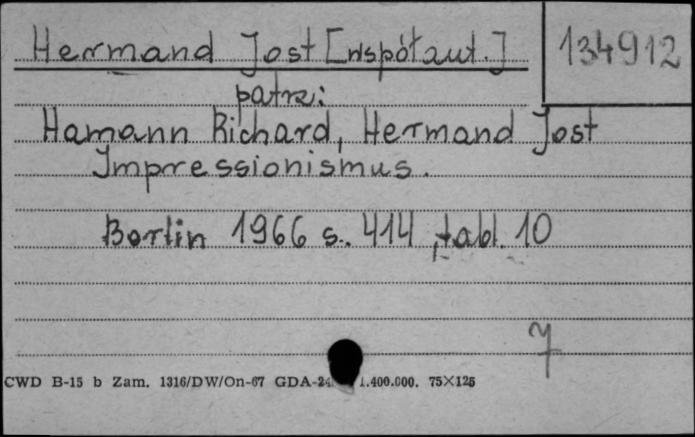 Hermand Jost [współaut.] 134912
patrz:
Hamann Richard, Hermand Jost
Impressionismus.
Berlin 1966 s. 414, tabl. 10
CWD B-15 b Zam. 1316/DW/On-67 GDA-24 1.400.000. 75×125